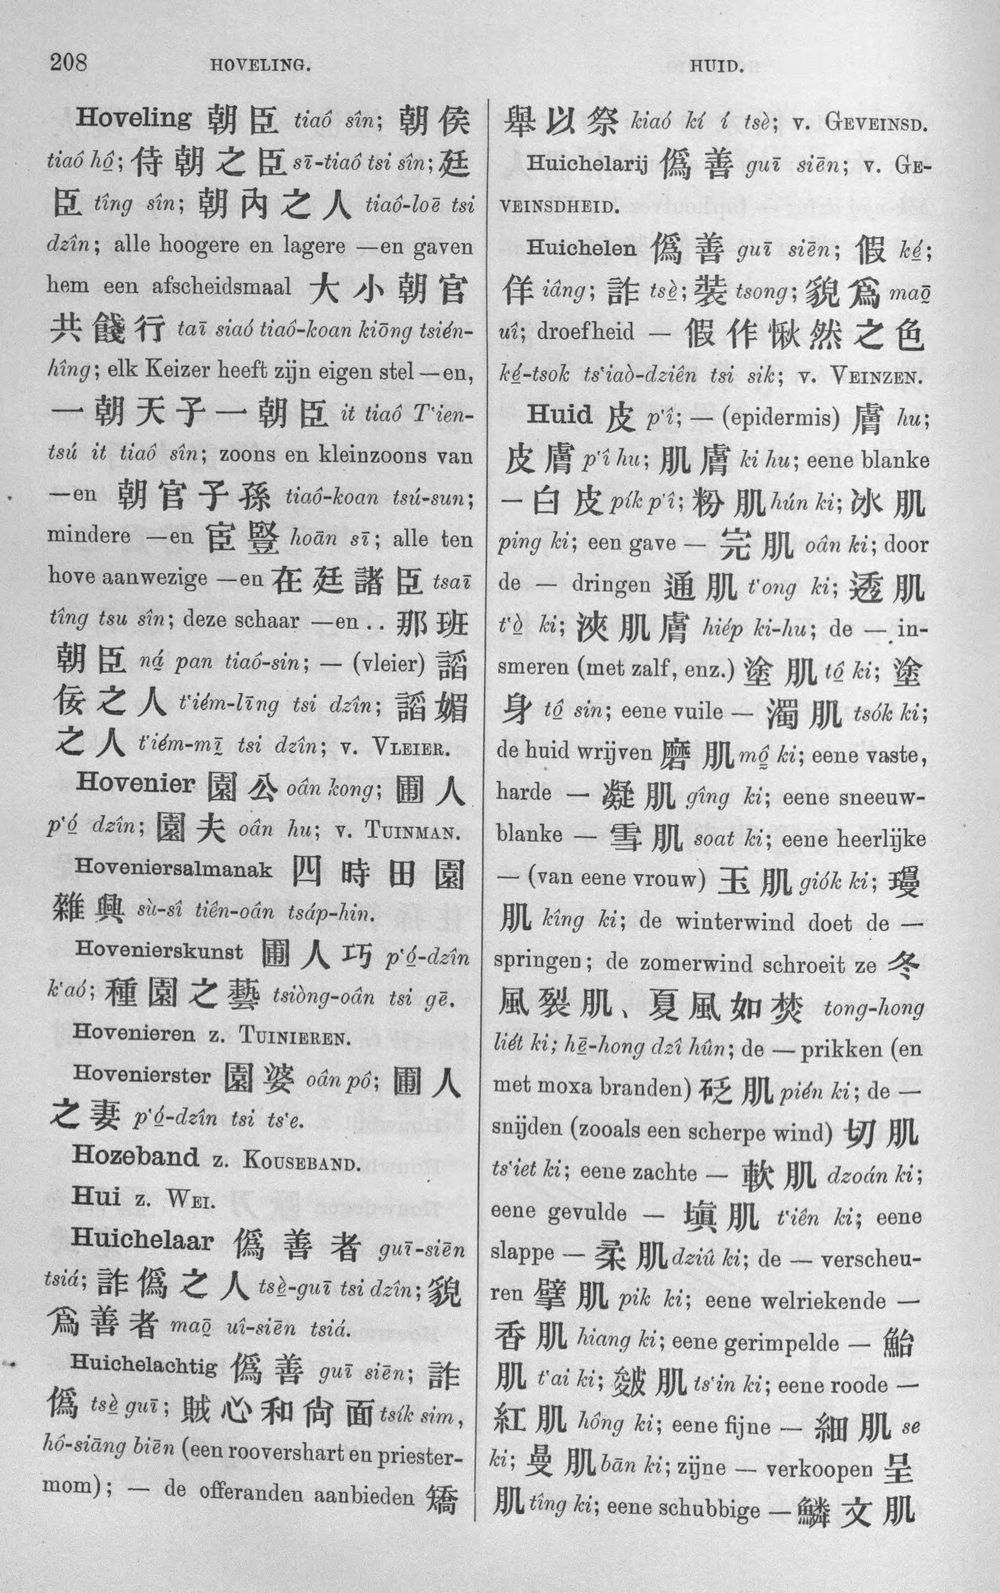 208
HOVELING.
HUID.
Hoveling 朝臣 tiaô sîn; 朝侯
tiaô hô̱; 侍朝之臣 sī-tiaô tsi sîn; 廷
臣 tîng sîn; 朝內之人 tiaô-loē tsi
dzîn; alle hoogere en lagere —en gaven
hem een afscheidsmaal 大小朝官
共餞行 taī siaó tiaô-koan kiōng tsién-
hîng; elk Keizer heeft zijn eigen stel —en,
一朝天子一朝臣 it tiaô T‘ien-
tsú it tiaô sîn; zoons en kleinzoons van
—en 朝官子孫 tiaô-koan tsú-sun;
mindere —en 宦豎 hoān sī; alle ten
hove aanwezige —en 在廷諸臣 tsaī
tîng tsu sîn; deze schaar —en .. 那班
朝臣 ná̱ pan tiaô-sin; — (vleier) 謟
佞之人 t‘iém-līng tsi dzîn; 謟媚
之人 t‘iém-mī̱ tsi dzîn; v. VLEIER.
Hovenier 園公 oân kong; 圃人
p‘ó̱ dzîn; 園夫 oân hu; v. TUINMAN.
Hoveniersalmanak 四時田園
雜興 sù-sî tiên-oân tsáp-hin.
Hovenierskunst 圃人巧 p‘ó̱-dzîn
k‘aó; 種園之藝 tsiòng-oân tsi gē.
Hovenieren z. TUINIEREN.
Hovenierster 園婆 oân pô; 圃人
之妻 p‘ó̱-dzîn tsi ts‘e.
Hozeband z. KOUSEBAND.
Hui z. WEI.
Huichelaar 僞善者 guī-siēn
tsiá; 詐僞之人 tsè̱-guī tsi dzîn; 貌
爲善者 maō̱ uî-siēn tsiá.
Huichelachtig 僞善 guī siēn; 詐
僞 tsè̱ guī; 賊心和尙面 tsík sim,
hô-siāng biēn (een roovershart en priester-
mom); — de offeranden aanbieden 矯
舉以祭 kiaó kí í tsè; v. GEVEINSD.
Huichelarij 僞善 guī siēn; v. GE-
VEINSDHEID.
Huichelen 僞善 guī siēn; 假 ké̱;
佯 iâng; 詐 tsè̱; 裝 tsong; 貌爲 maō̱
uî; droefheid — 假作愀然之色
ké̱-tsok ts‘iaò-dziên tsi sik; v. VEINZEN.
Huid 皮 p‘î; — (epidermis) 膚 hu;
皮膚 p‘î hu; 肌膚 ki hu; eene blanke
— 白皮 pík p‘î; 粉肌 hún ki; 冰肌
ping ki; een gave — 完肌 oân ki; door
de — dringen 通肌 t‘ong ki; 透肌
t‘ò̱ ki; 浹肌膚 hiép ki-hu; de — in-
smeren (met zalf, enz.) 塗肌 tô̱ ki; 塗
身 tô̱ sin; eene vuile — 濁肌 tsók ki;
de huid wrijven 磨肌 mô̱ ki; eene vaste,
harde — 凝肌 gîng ki; eene sneeuw-
blanke — 雪肌 soat ki; eene heerlijke
— (van eene vrouw) 玉肌 giók ki; 瓊
肌 kîng ki; de winterwind doet de —
springen; de zomerwind schroeit ze 冬
風裂肌、夏風如焚 tong-hong
liét ki; hē̱-hong dzî hûn; de — prikken (en
met moxa branden) 砭肌 pién ki; de —
snijden (zooals een scherpe wind) 切肌
ts‘iet ki; eene zachte — 軟肌 dzoán ki;
eene gevulde — 塡肌 t‘iên ki; eene
slappe — 柔肌 dziû ki; de — verscheu-
ren 擘肌 pik ki; eene welriekende —
香肌 hiang ki; eene gerimpelde — 鮐
肌 t‘ai ki; 皴肌 ts‘in ki; eene roode —
紅肌 hông ki; eene fijne — 細肌 se
ki; 曼肌 bān ki; zijne — verkoopen 呈
肌 tîng ki; eene schubbige — 鱗文肌